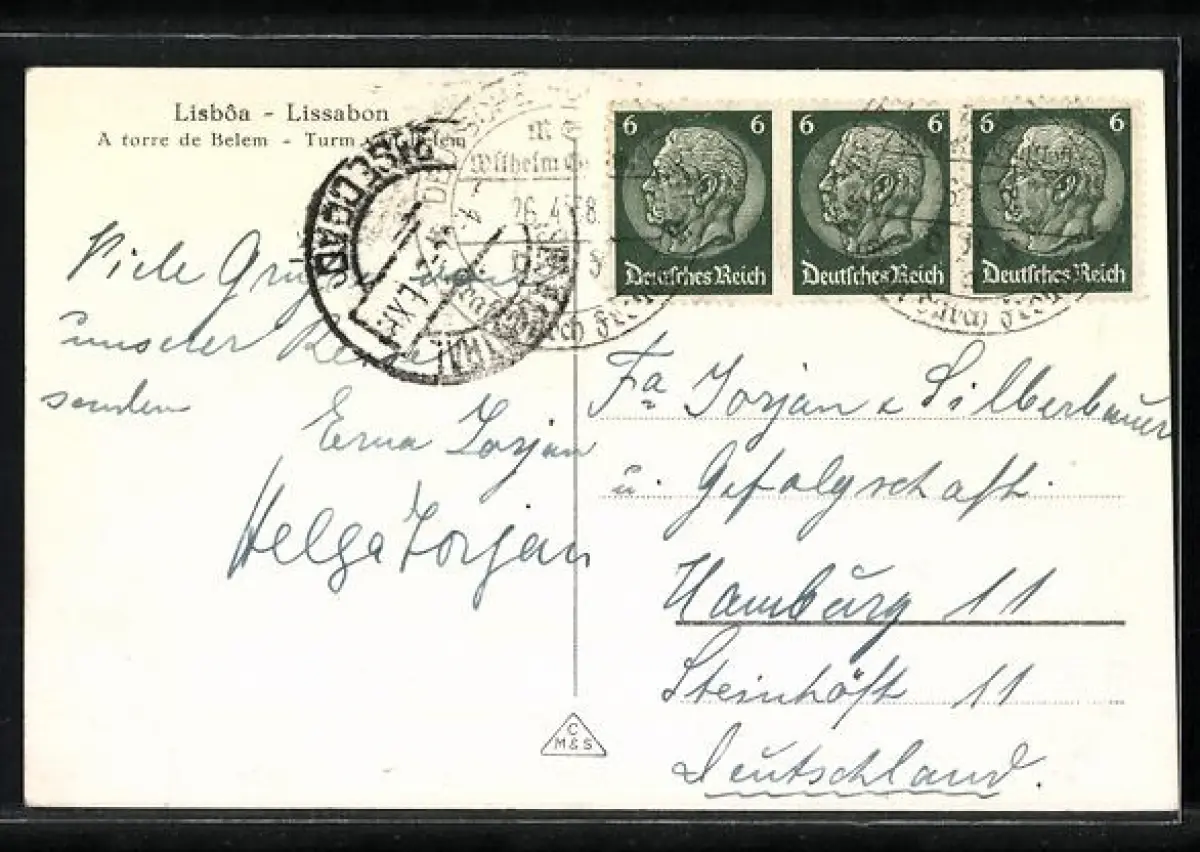 Lisbôa - Lissabon
A torre de Belem - Turm Belem
Viele Grüße
unserer Reise
senden
Erna Jorjan
Helga Jorjan
M S
Wilhelm
26.4.38
6 6
Deutsches Reich
6 6
Deutsches Reich
6 6
Deutsches Reich
Fa Jorjan & Silberbauer
u. Gefolgschaft.
Hamburg 11
Steinhöft 11
Deutschland.
C
M&S